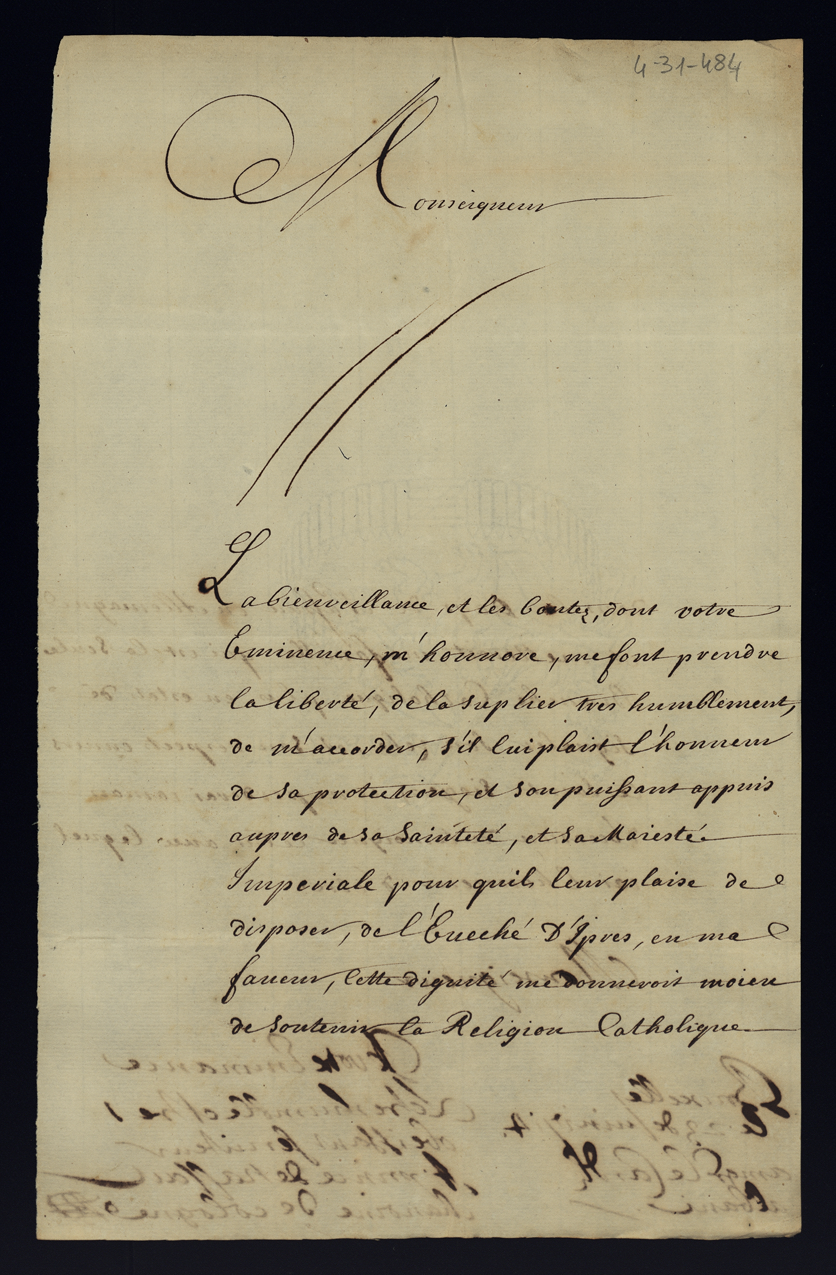 4-31-484
Monseigneur
La bienveillance, et les bontez, dont votre
Eminence, m'honnore, me font prendre
la liberté, de la suplier tres humblement,
de m'accorder, s'il lui plaist l'honneur
de sa protection, et son puissant appuis
aupres de sa Sainteté, et sa Maiesté
Imperiale pour quils leur plaise de
disposer, de l'Eueché D'Ipres, en ma
faueur, Cette dignité me donneroit moien
de soutenir la Religion Catholique